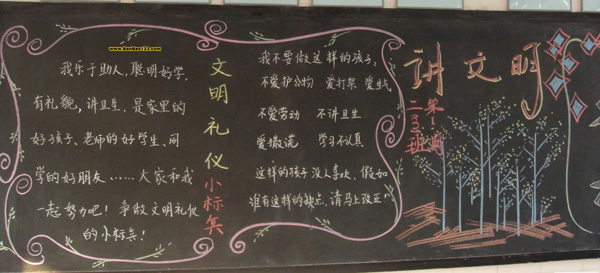 www.BanBao123.com
我乐于助人,聪明好学,
有礼貌,讲卫生,是家里的
好孩子、老师的好学生、同
学的好朋友……大家和我
一起努力吧!争做文明礼仪
的小标兵!
文明礼仪小标兵
我不要做这样的孩子:
不爱护公物 爱打架 爱生气
不爱劳动 不讲卫生
爱撒谎 学习不认真
这样的孩子没人喜欢,假如
谁有这样的缺点,请马上改正!
讲文明
二(3)班